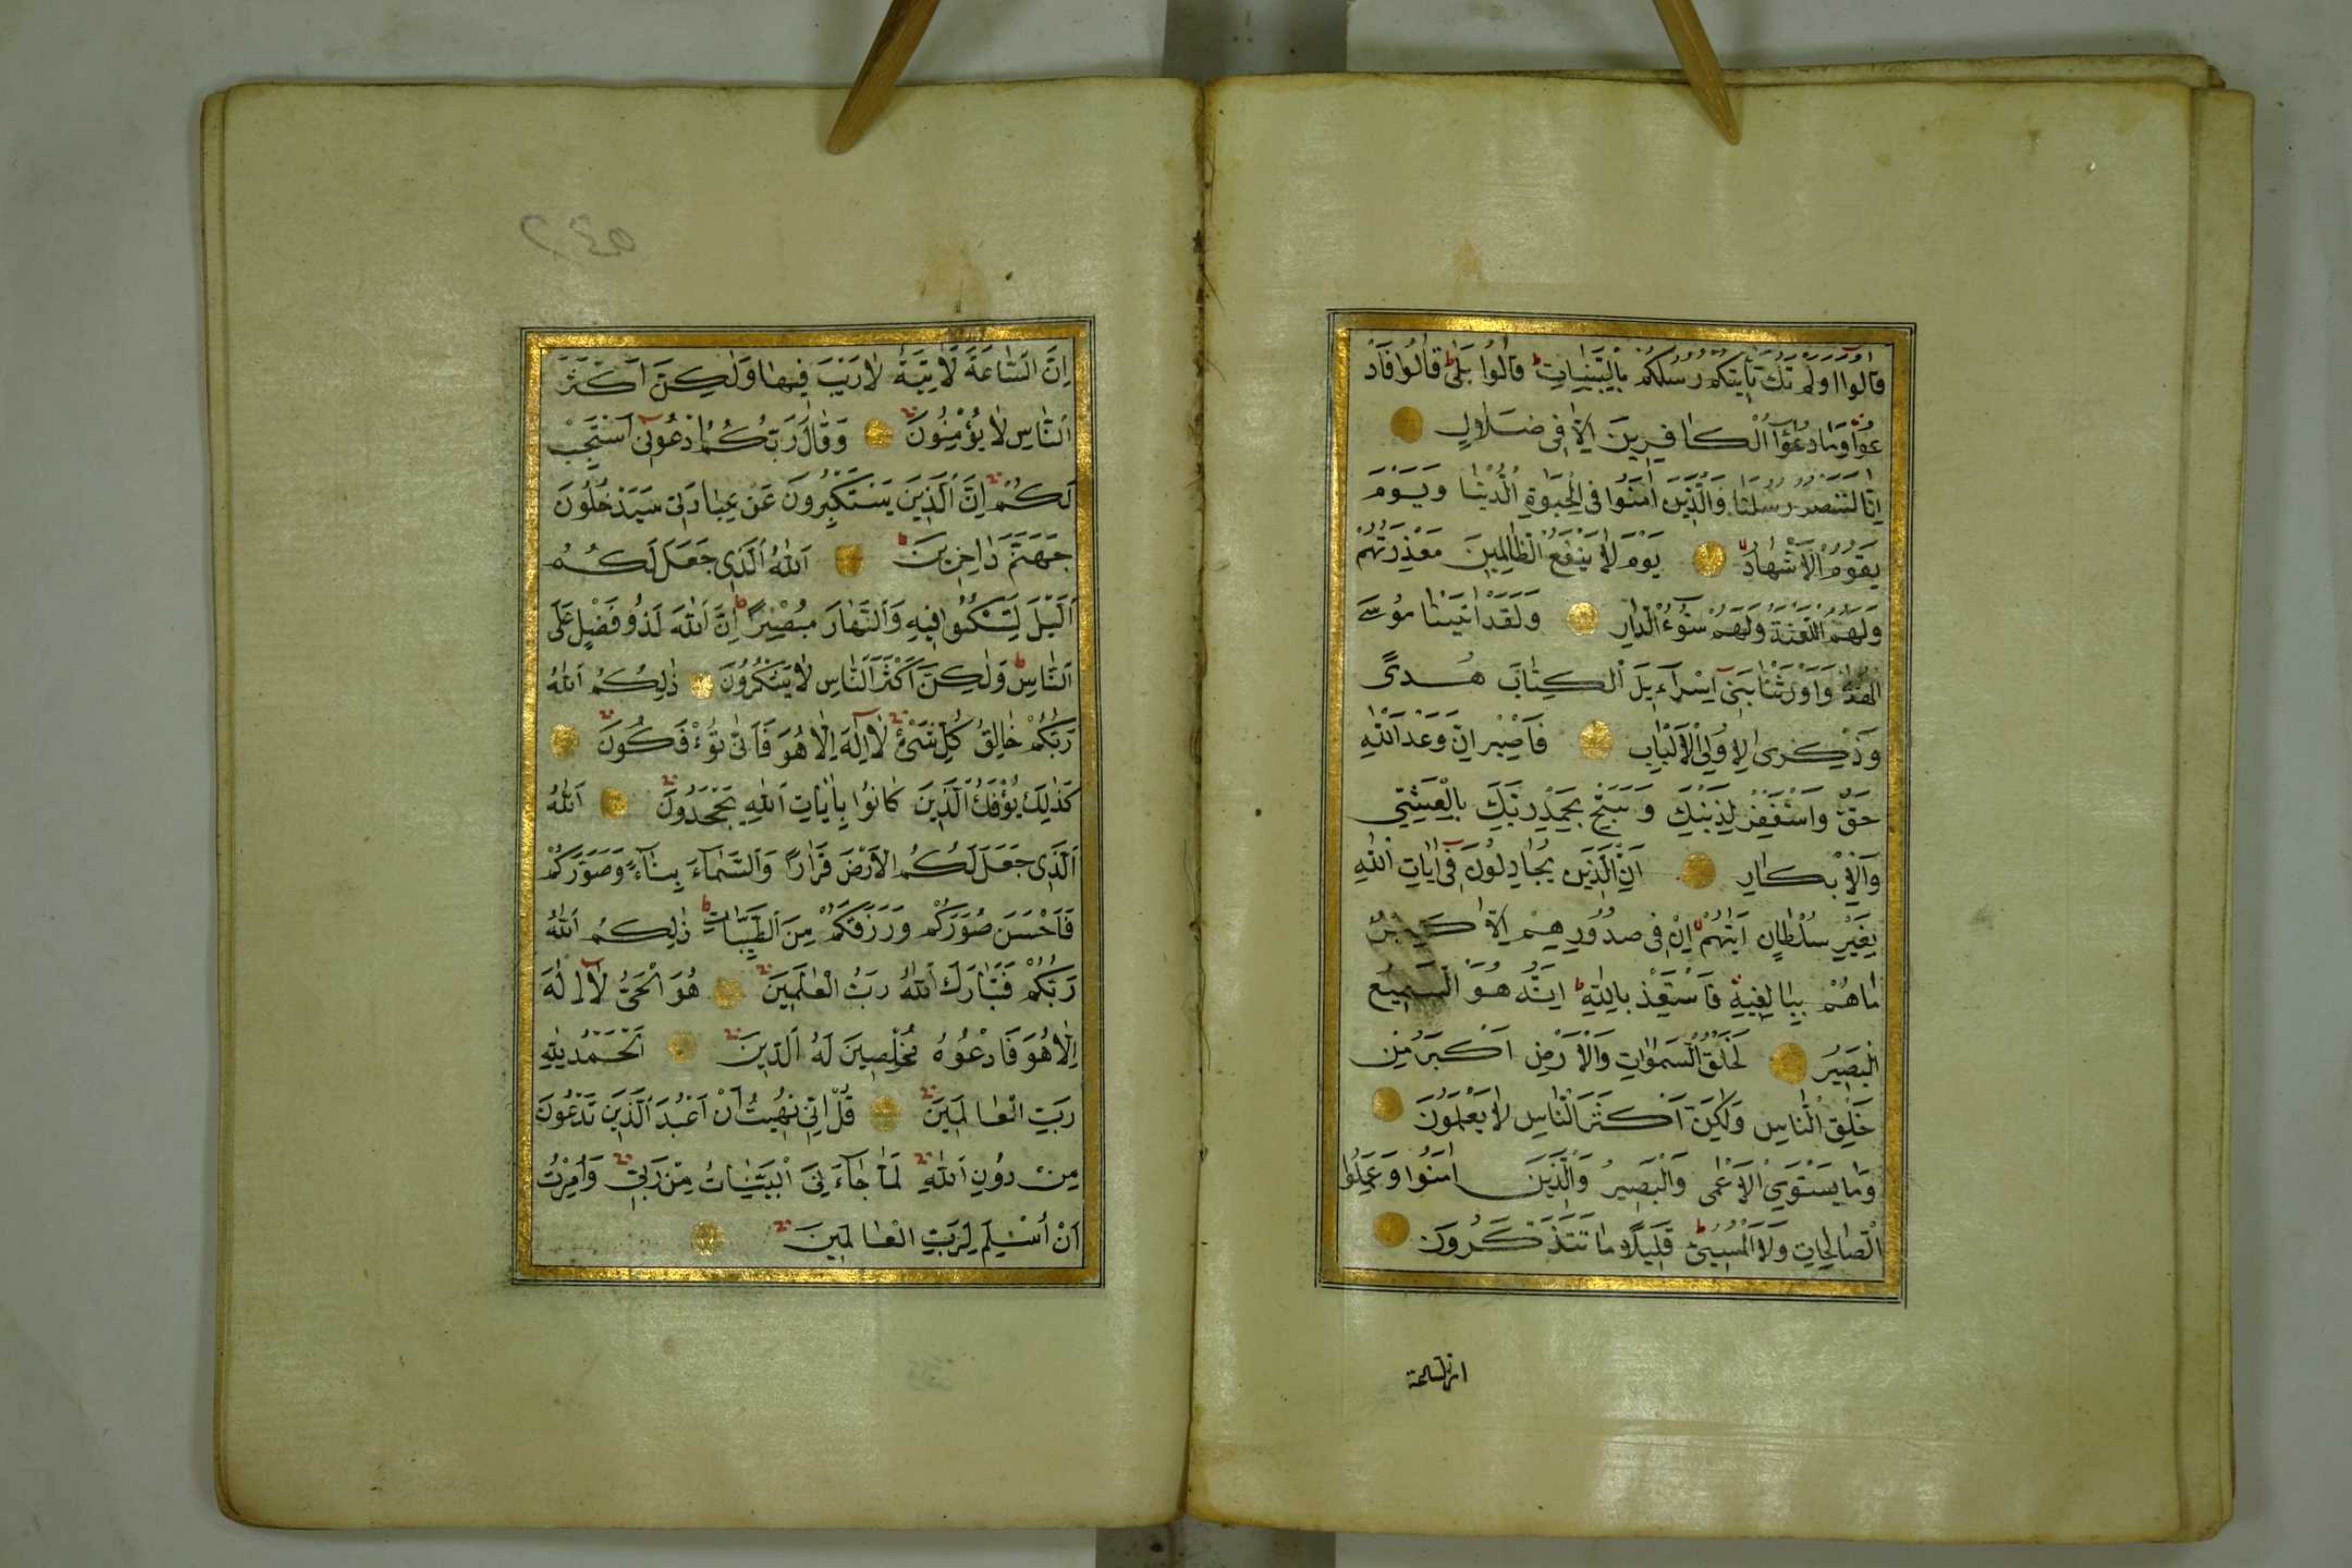 قَالُوا اَوَلَمْ تَكُ تَأْتِيكُمْ رُسُلُكُمْ بِالْبَيِّنَاتِ قَالُوا بَلٰى قَالُوا فَادْ
عُوا وَمَا دُعٰٓؤُا الْكَافِرِينَ اِلَّا فِى ضَلَالٍ
اِنَّا لَنَنْصُرُ رُسُلَنَا وَالَّذِينَ اٰمَنُوا فِى الْحَيٰوةِ الدُّنْيَا وَيَوْمَ
يَقُومُ الْاَشْهَادُ يَوْمَ لَا يَنْفَعُ الظَّالِمِينَ مَعْذِرَتُهُمْ
وَلَهُمُ اللَّعْنَةُ وَلَهُمْ سُٓوءُ الدَّارِ وَلَقَدْ اٰتَيْنَا مُوسَى
الْهُدٰى وَاَوْرَثْنَا بَنِٓى اِسْرَٓاءِيلَ الْكِتَابَ هُدًى
وَذِكْرٰى لِاُولِى الْاَلْبَابِ فَاصْبِرْ اِنَّ وَعْدَ اللّٰهِ
حَقٌّ وَاسْتَغْفِرْ لِذَنْبِكَ وَسَبِّحْ بِحَمْدِ رَبِّكَ بِالْعَشِىِّ
وَالْاِبْكَارِ اِنَّ الَّذِينَ يُجَادِلُونَ فِٓى اٰيَاتِ اللّٰهِ
بِغَيْرِ سُلْطَانٍ اَتٰيهُمْ اِنْ فِى صُدُورِهِمْ اِلَّا كِبْرٌ
مَا هُمْ بِبَالِغِيهِ فَاسْتَعِذْ بِاللّٰهِ اِنَّهُ هُوَ السَّمِيعُ
الْبَصِيرُ لَخَلْقُ السَّمٰوَاتِ وَالْاَرْضِ اَكْبَرُ مِنْ
خَلْقِ النَّاسِ وَلٰكِنَّ اَكْثَرَ النَّاسِ لَا يَعْلَمُونَ
وَمَا يَسْتَوِى الْاَعْمٰى وَالْبَصِيرُ وَالَّذِينَ اٰمَنُوا وَعَمِلُوا
الصَّالِحَاتِ وَلَا الْمُسِٓىءُ قَلِيلًا مَا تَتَذَكَّرُونَ
ان الساعة
٢٤٥
اِنَّ السَّاعَةَ لَاٰتِيَةٌ لَا رَيْبَ فِيهَا وَلٰكِنَّ اَكْثَرَ
النَّاسِ لَا يُؤْمِنُونَ وَقَالَ رَبُّكُمُ ادْعُونِٓى اَسْتَجِبْ
لَكُمْ اِنَّ الَّذِينَ يَسْتَكْبِرُونَ عَنْ عِبَادَتِى سَيَدْخُلُونَ
جَهَنَّمَ دَاخِرِينَ اَللّٰهُ الَّذِى جَعَلَ لَكُمُ
الَّيْلَ لِتَسْكُنُوا فِيهِ وَالنَّهَارَ مُبْصِرًا اِنَّ اللّٰهَ لَذُو فَضْلٍ عَلَى
النَّاسِ وَلٰكِنَّ اَكْثَرَ النَّاسِ لَا يَشْكُرُونَ ذٰلِكُمُ اللّٰهُ
رَبُّكُمْ خَالِقُ كُلِّ شَىْءٍ لَٓا اِلٰهَ اِلَّا هُوَ فَاَنّٰى تُؤْفَكُونَ
كَذٰلِكَ يُؤْفَكُ الَّذِينَ كَانُوا بِاٰيَاتِ اللّٰهِ يَجْحَدُونَ اَللّٰهُ
الَّذِى جَعَلَ لَكُمُ الْاَرْضَ قَرَارًا وَالسَّمَٓاءَ بِنَٓاءً وَصَوَّرَكُمْ
فَاَحْسَنَ صُوَرَكُمْ وَرَزَقَكُمْ مِنَ الطَّيِّبَاتِ ذٰلِكُمُ اللّٰهُ
رَبُّكُمْ فَتَبَارَكَ اللّٰهُ رَبُّ الْعَالَمِينَ هُوَ الْحَىُّ لَٓا اِلٰهَ
اِلَّا هُوَ فَادْعُوهُ مُخْلِصِينَ لَهُ الدِّينَ اَلْحَمْدُ لِلّٰهِ
رَبِّ الْعَالَمِينَ قُلْ اِنِّى نُهِيتُ اَنْ اَعْبُدَ الَّذِينَ تَدْعُونَ
مِنْ دُونِ اللّٰهِ لَمَّا جَٓاءَنِىَ الْبَيِّنَاتُ مِنْ رَبِّى وَاُمِرْتُ
اَنْ اُسْلِمَ لِرَبِّ الْعَالَمِينَ